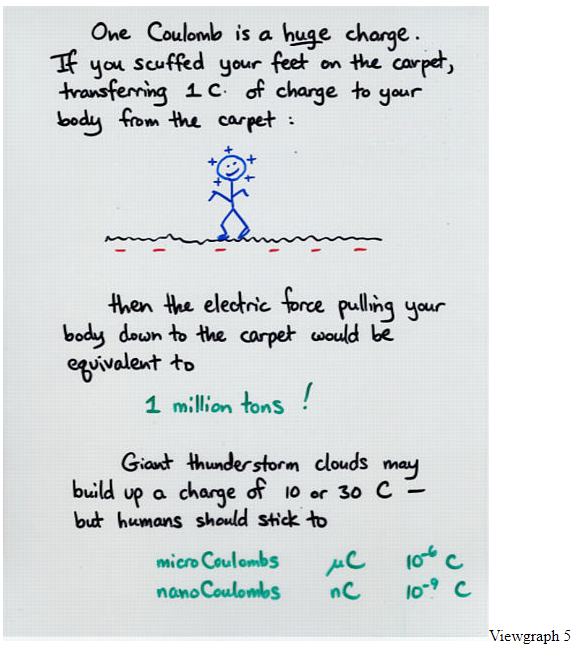 One Coulomb is a huge charge.
If you scuffed your feet on the carpet,
transferring 1 C. of charge to your
body from the carpet :
+ +
+ +
+ +
− − − − − −
then the electric force pulling your
body down to the carpet would be
equivalent to
1 million tons !
Giant thunderstorm clouds may
build up a charge of 10 or 30 C –
but humans should stick to
microCoulombs μC 10⁻⁶ C
nanoCoulombs nC 10⁻⁹ C
Viewgraph 5